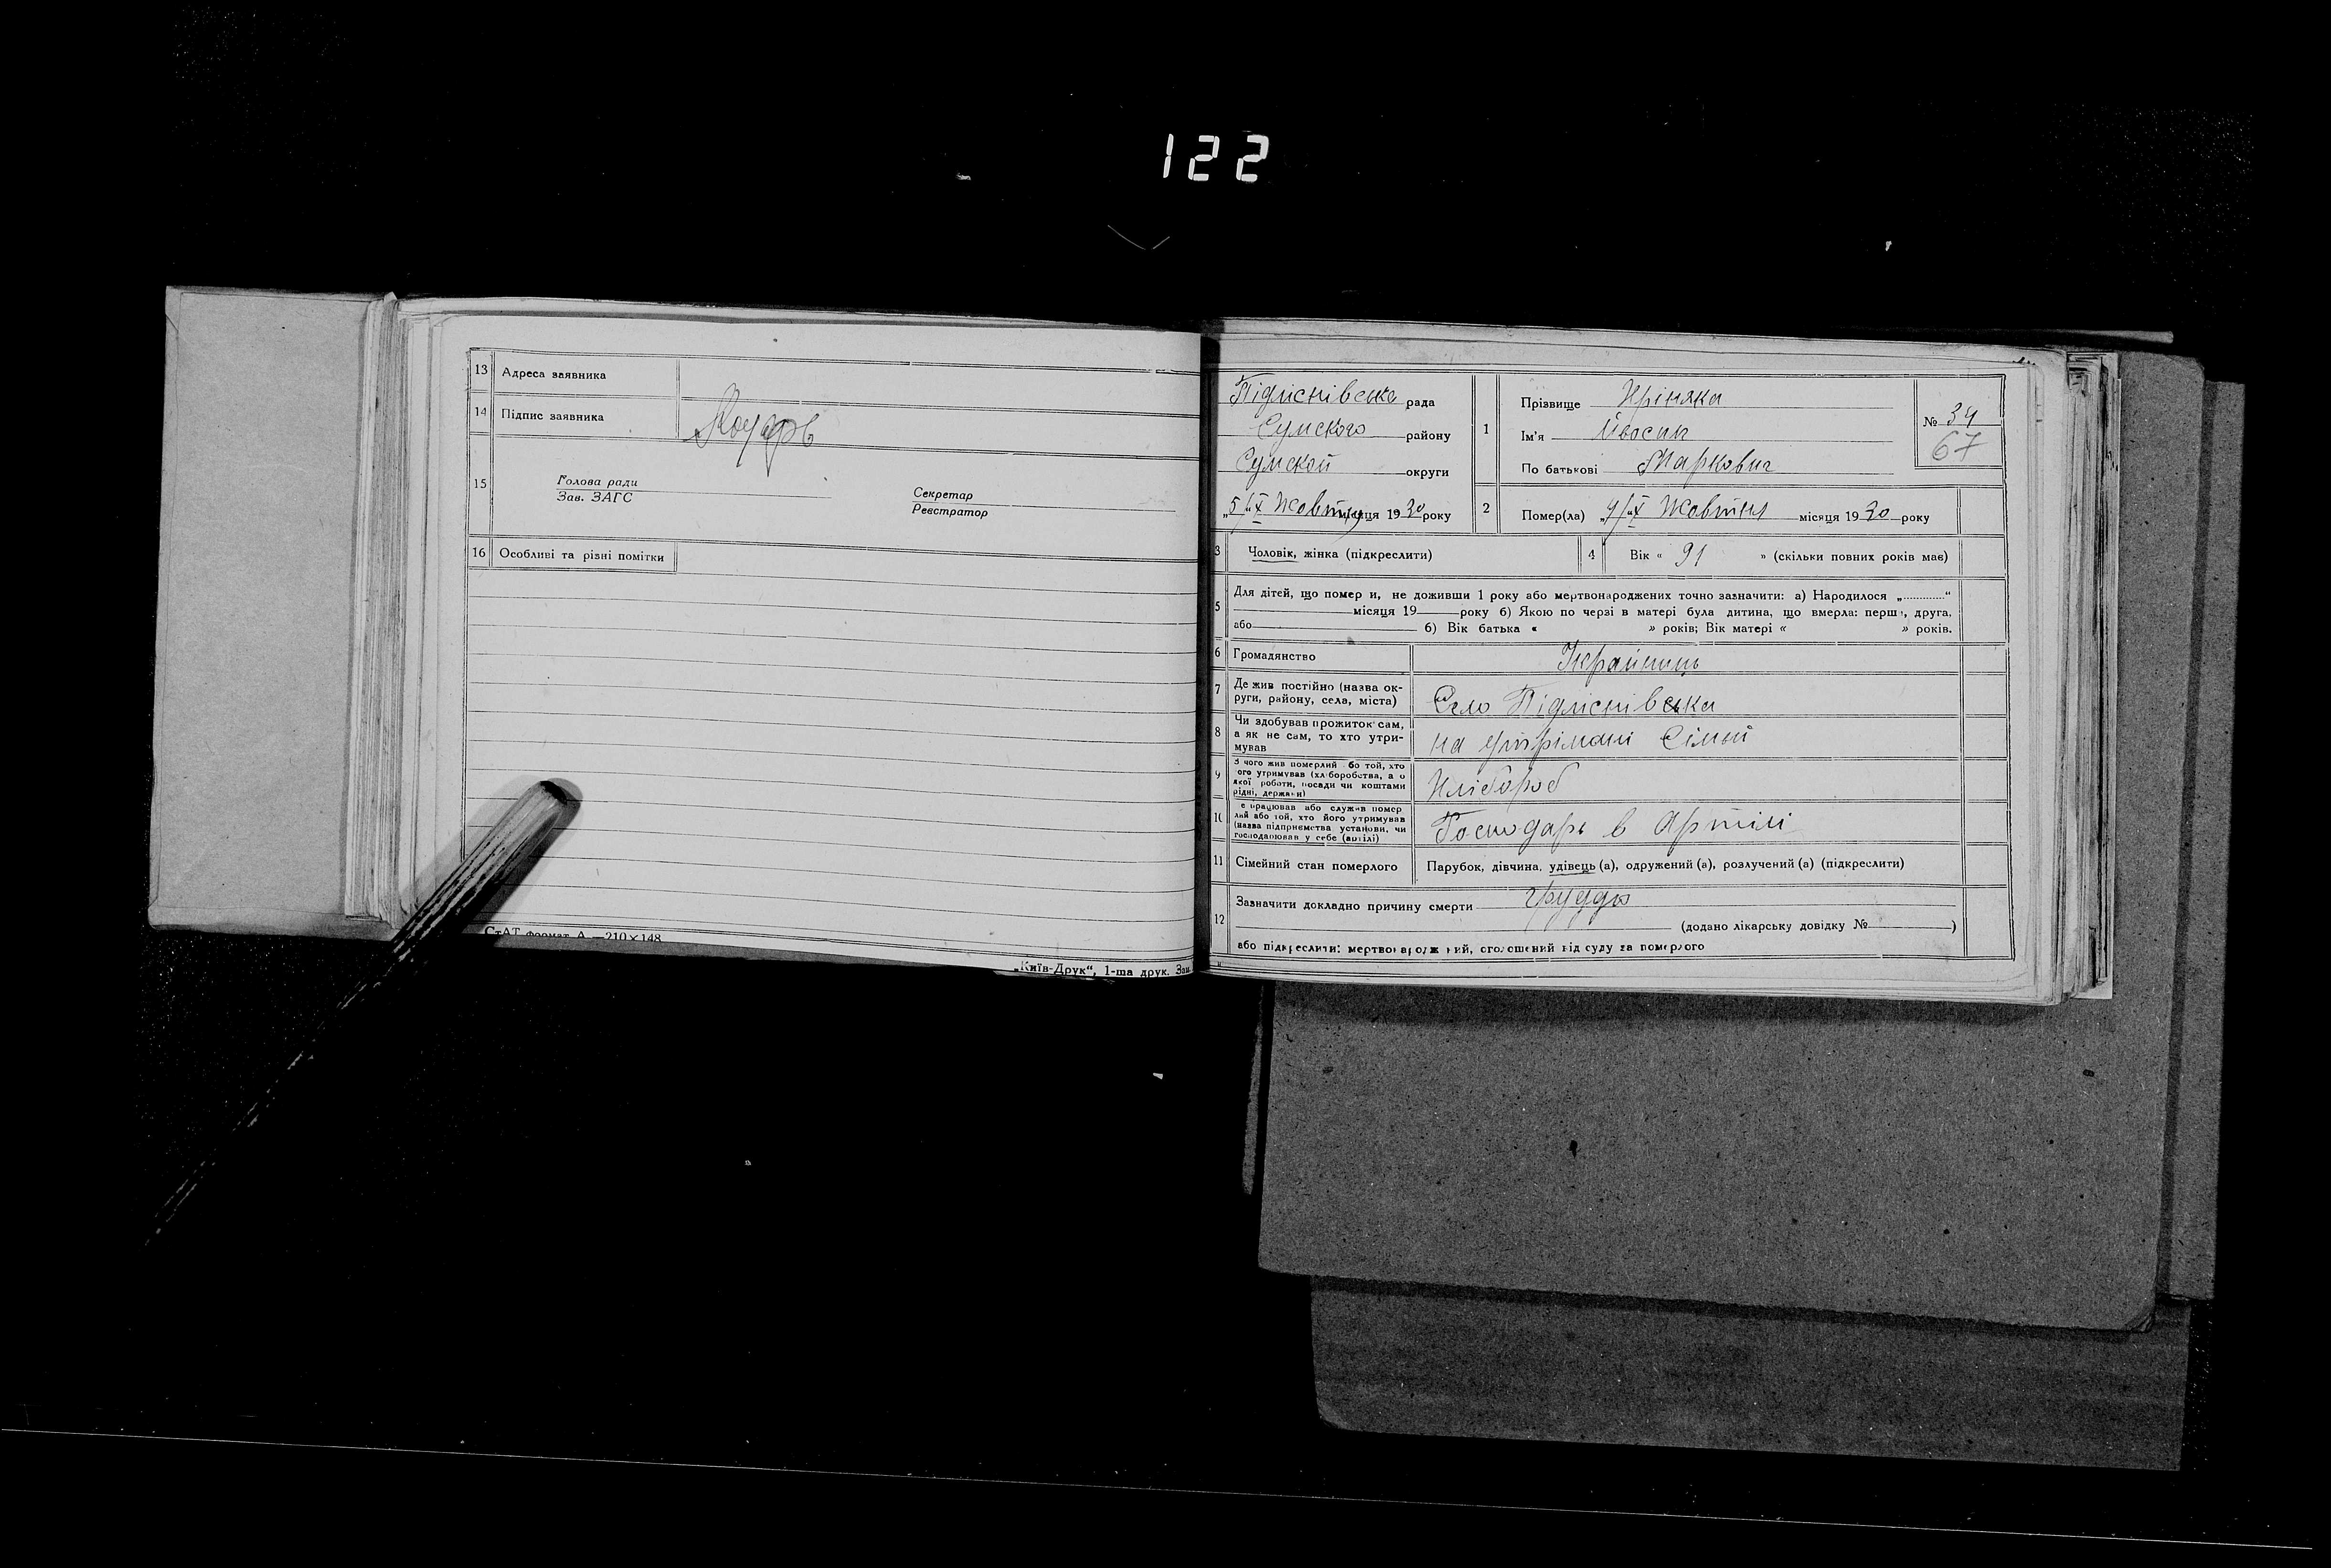 122
13 Адреса заявника
14 Підпис заявника
15 Голова ради
Зав. ЗАГС
Секретар
Реєстратор
16 Особливі та різні помітки
СтАТ формат А —210×148
„Київ-Друк“, 1-ша друк. Зам.
Підліснівська рада
Сумского району
Сумской округи
„5/X“ Жовтня місяця 1930 року
1 Прізвище
Ім'я Йосип
По батькові Маркович
№ 34
67
2 Помер(ла) „4/X“ Жовтня місяця 1930 року
3 Чоловік, жінка (підкреслити)
4 Вік « 91 » (скільки повних років має)
5 Для дітей, що помер и, не доживши 1 року або мертвонароджених точно зазначити: а) Народилося „............“
місяця 19 року б) Якою по черзі в матері була дитина, що вмерла: перша, друга,
або б) Вік батька « » років; Вік матері « » років.
6 Громадянство Українць
7 Де жив постійно (назва ок-
руги, району, села, міста) Село Підліснівська
8 Чи здобував прожиток сам,
а як не сам, то хто утри-
мував на утрімані Сімьй
9 З чого жив померлий або той, хто
ого утримував (хліборобства, а о
якої роботи, посади чи коштами
рідні, держави) Хлібороб
10 е працював або служив помер
лий або той, хто його утримував
(назва підприємства установи, чи
господарював у себе (артілі) Господарь в Артілі
11 Сімейний стан померлого Парубок, дівчина, удівець (а), одружений (а), розлучений (а) (підкреслити)
12 Зазначити докладно причину смерти
(додано лікарську довідку № )
або підкреслити: мертвонароджений, оголошений від суду за померлого